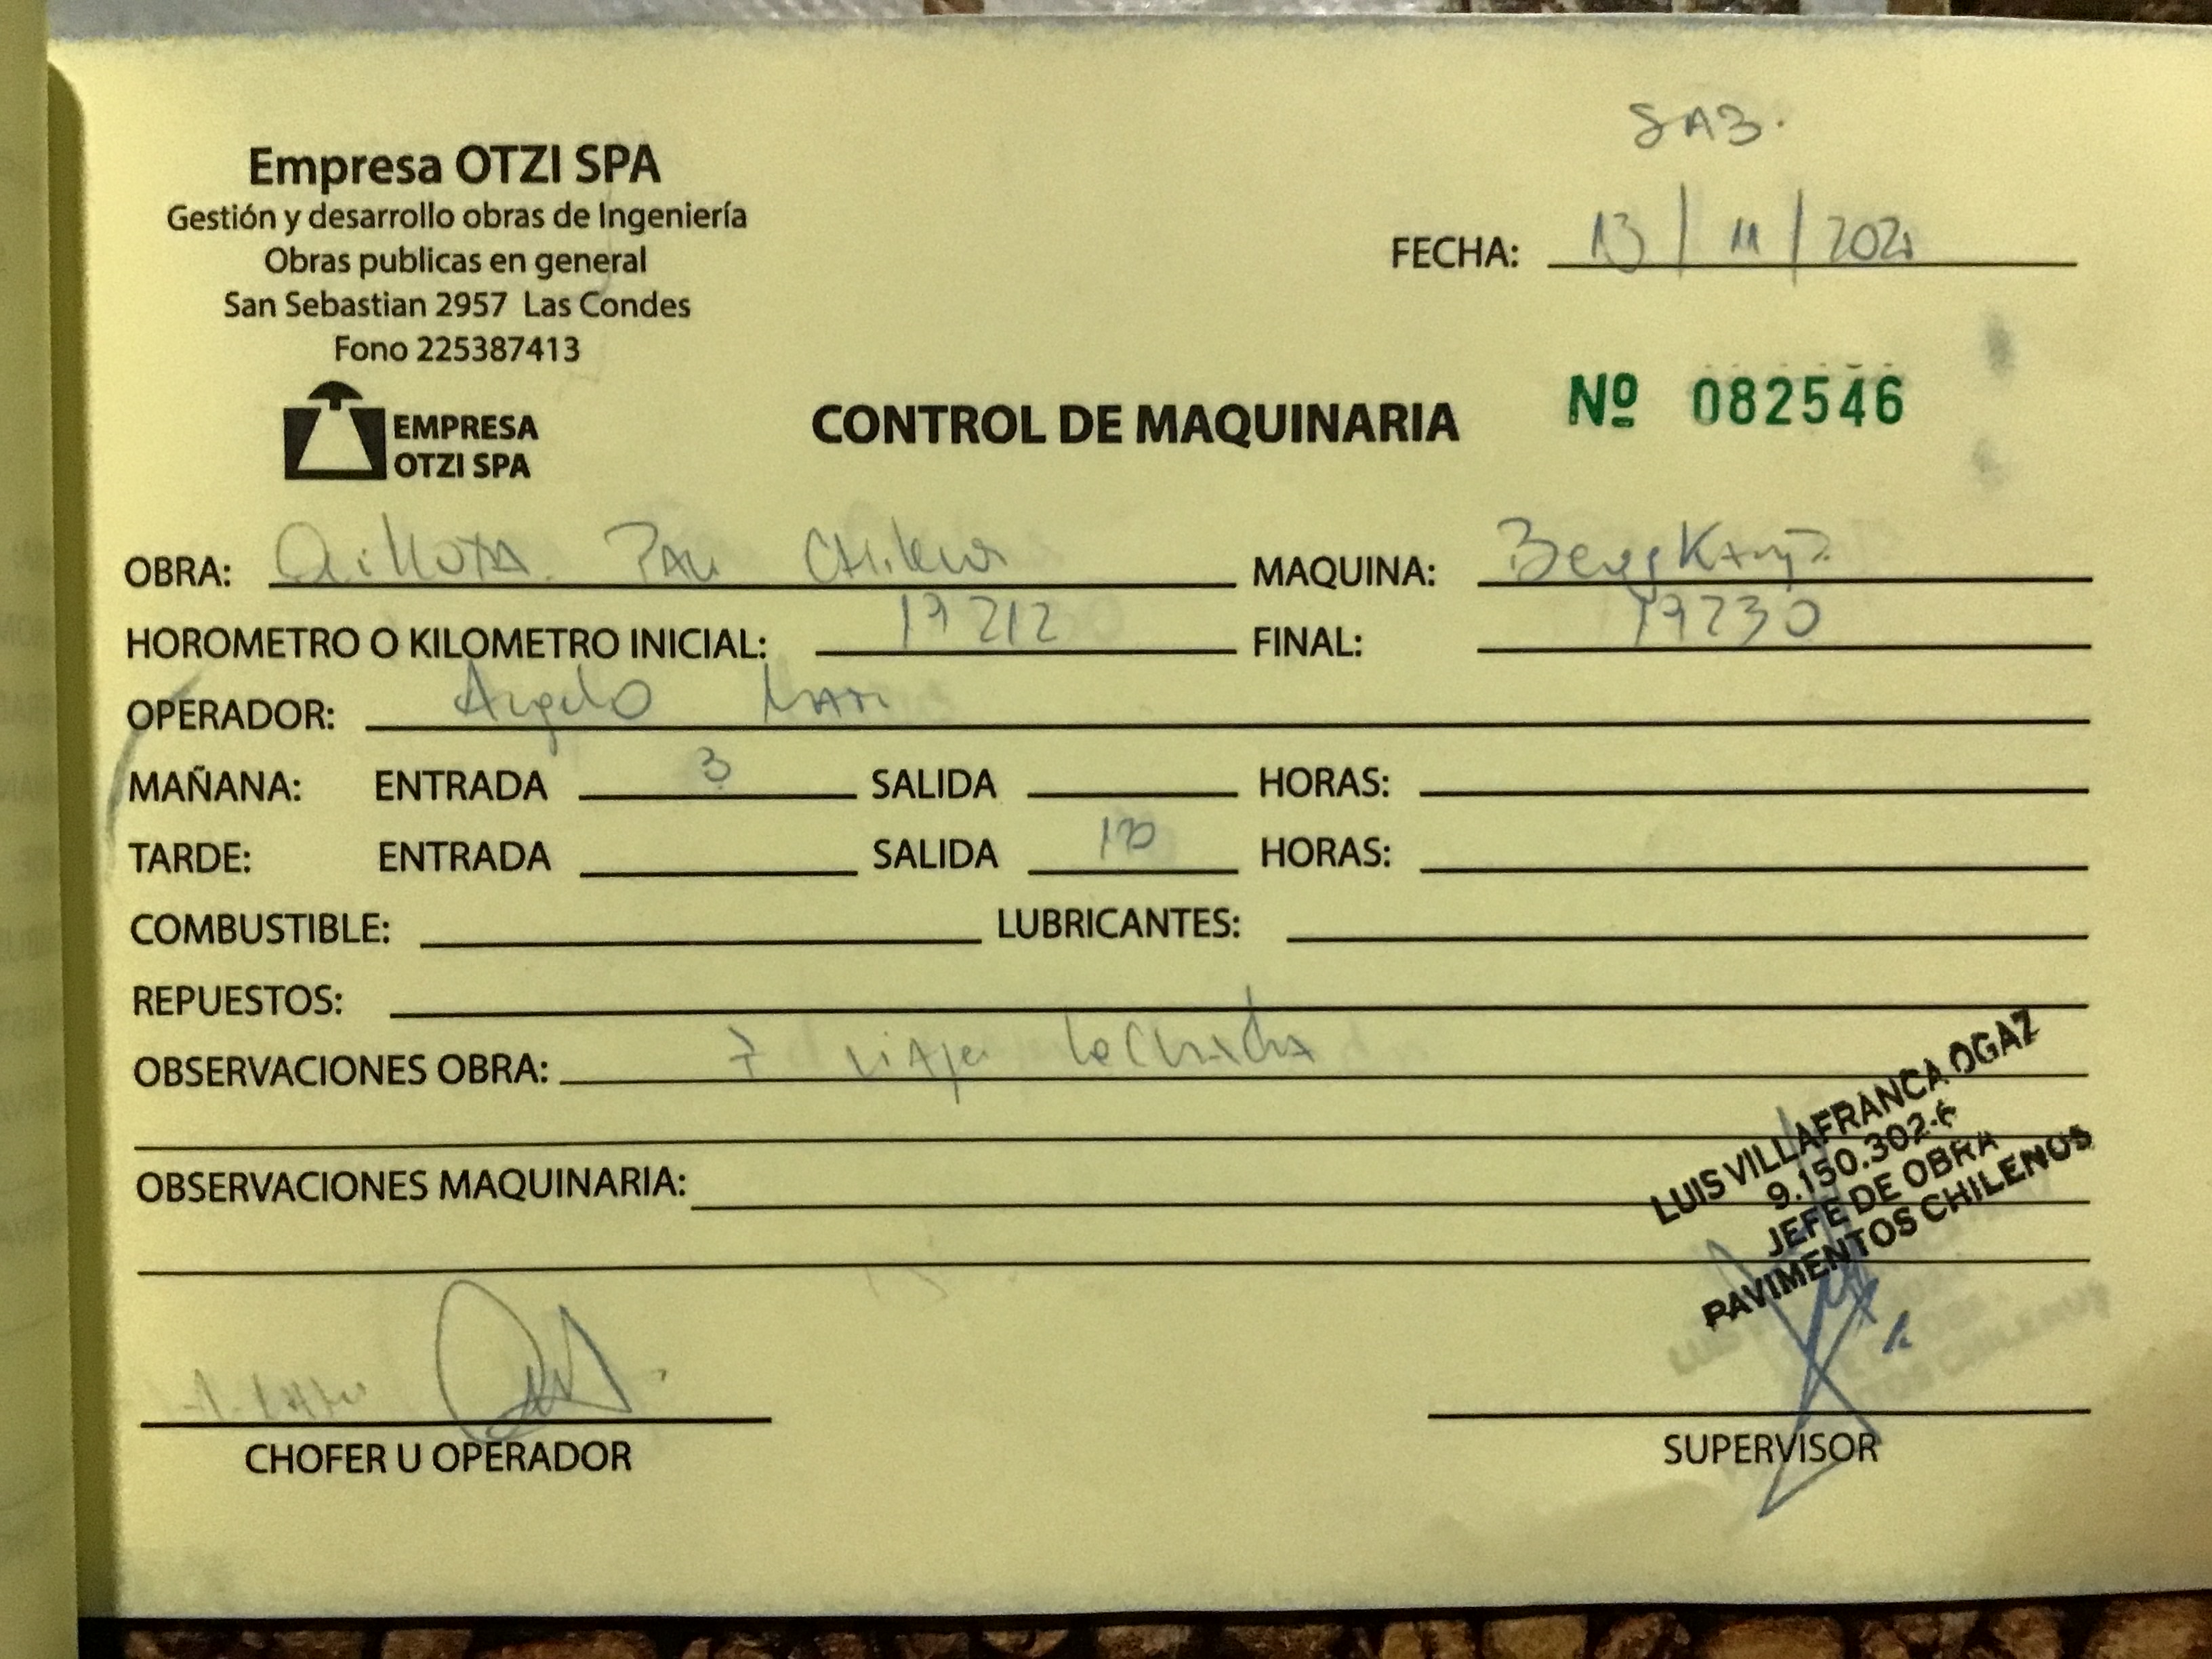 Empresa OTZI SPA
Gestión y desarrollo obras de Ingeniería
Obras publicas en general
San Sebastian 2957 Las Condes
Fono 225387413
SAB.
FECHA: 13 / 11 / 2021
EMPRESA
OTZI SPA
CONTROL DE MAQUINARIA Nº 082546
OBRA: Quillota Pav Chilenos MAQUINA:
HOROMETRO O KILOMETRO INICIAL: 19212 FINAL: 19230
OPERADOR: Angelo
MAÑANA: ENTRADA 8 SALIDA HORAS:
TARDE: ENTRADA SALIDA HORAS:
COMBUSTIBLE: LUBRICANTES:
REPUESTOS:
OBSERVACIONES OBRA: 7 viajes
OBSERVACIONES MAQUINARIA:
LUIS VILLAFRANCA OGAZ
9.150.302-
JEFE DE OBRA
PAVIMENTOS CHILENOS
CHOFER U OPERADOR
SUPERVISOR